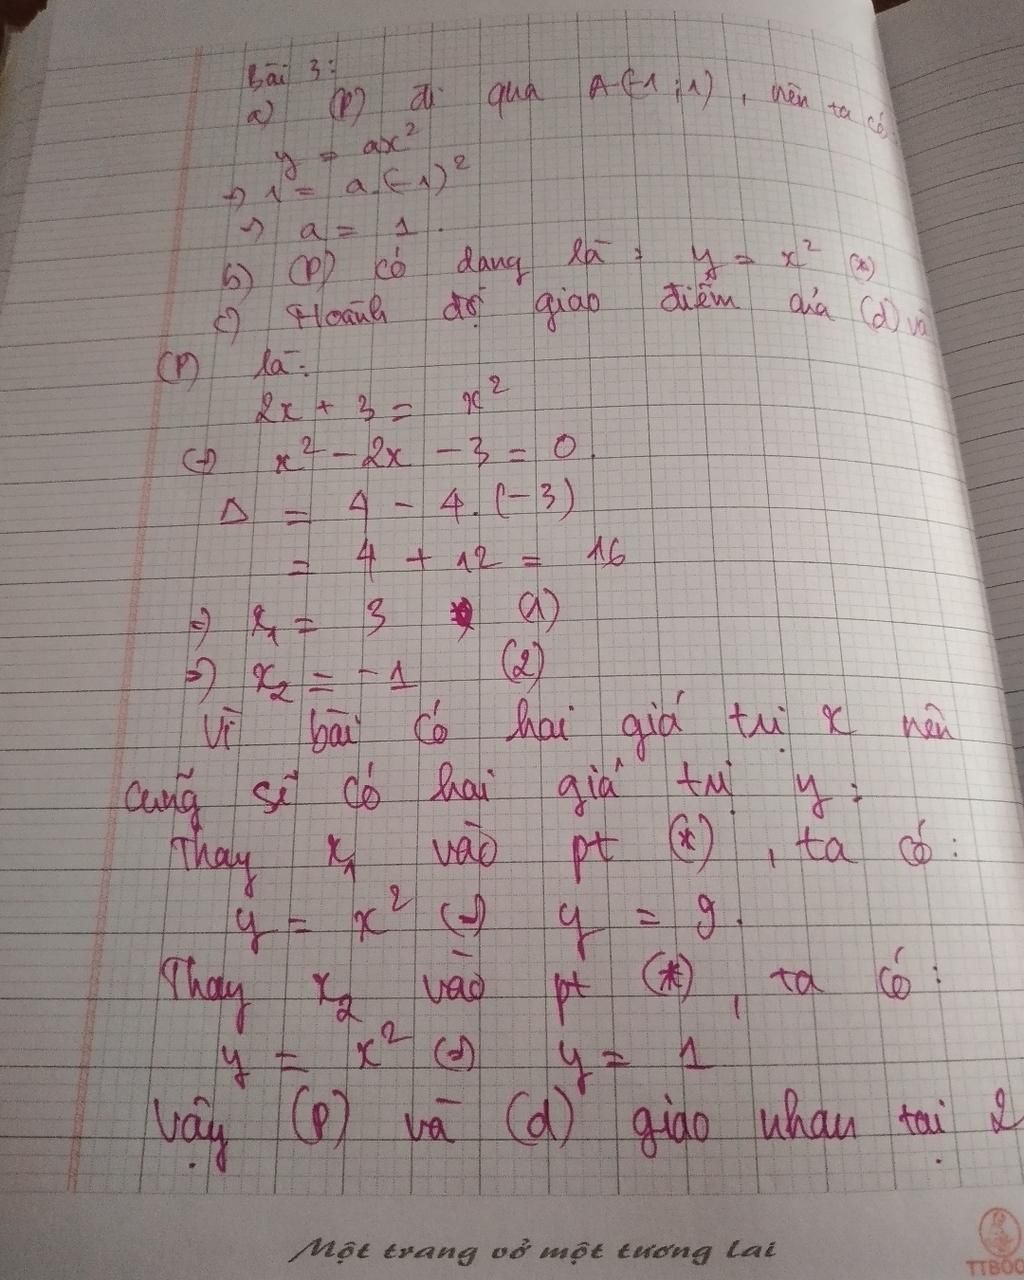 Bài 3:
a) (P) đi qua A(-1;1), nên ta có:
y = ax²
=> 1 = a.(-1)²
=> a = 1.
b) (P) có dạng là: y = x² (*)
c) Hoành độ giao điểm của (d) và
(P) là:
2x + 3 = x²
<=> x² - 2x - 3 = 0.
Δ = 4 - 4.(-3)
= 4 + 12 = 16
=> x₁ = 3 (1)
=> x₂ = -1 (2)
Vì bài có hai giá trị x nên
cũng sẽ có hai giá trị y:
Thay x₁ vào pt (*), ta có:
y = x² <=> y = 9.
Thay x₂ vào pt (*), ta có:
y = x² <=> y = 1
Vậy (P) và (d) giao nhau tại 2
Một trang vở một tương lai
TTBOOK